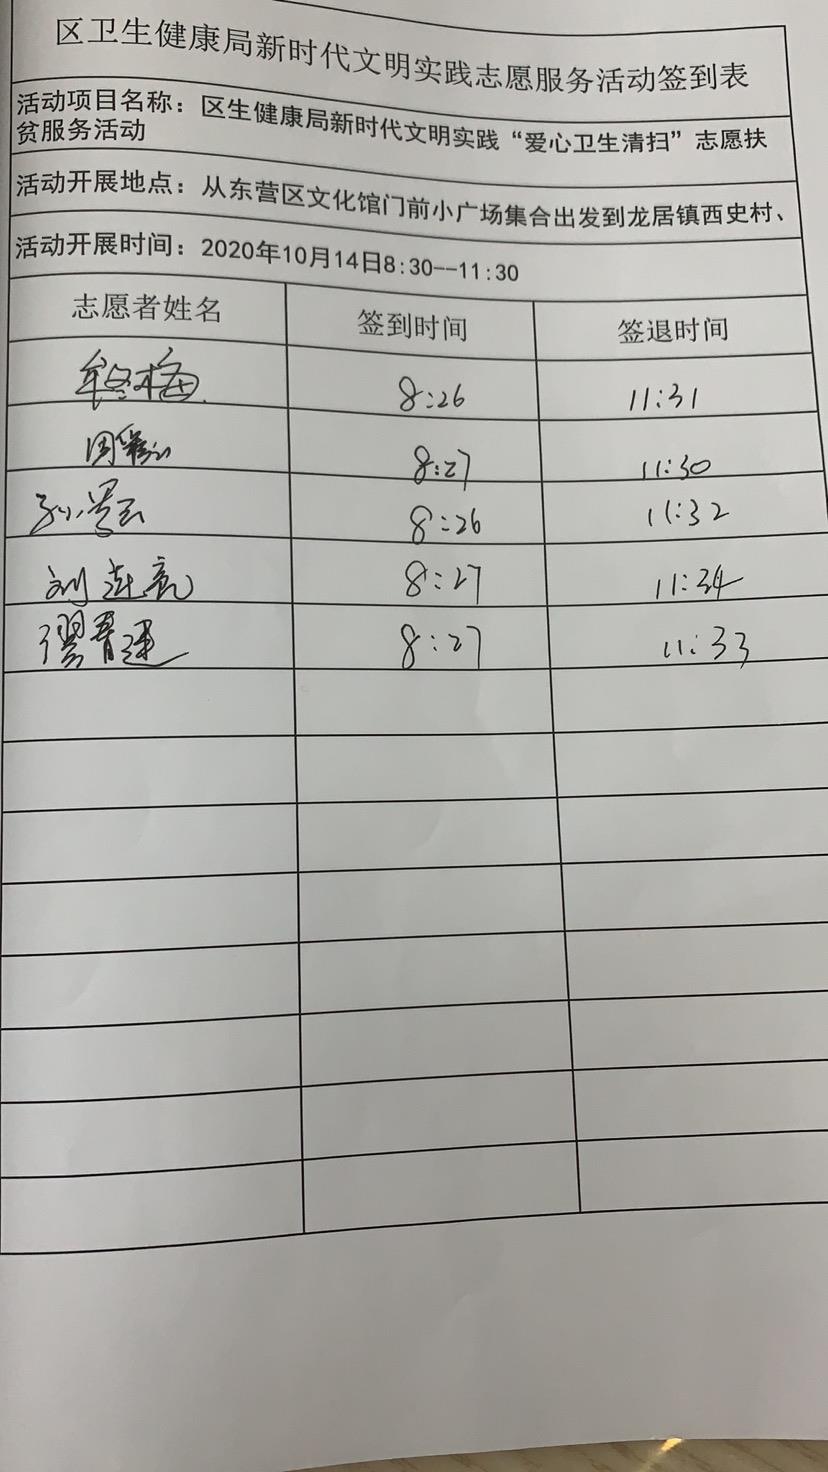 区卫生健康局新时代文明实践志愿服务活动签到表
活动项目名称：区生健康局新时代文明实践“爱心卫生清扫”志愿扶
贫服务活动
活动开展地点：从东营区文化馆门前小广场集合出发到龙居镇西史村、
活动开展时间：2020年10月14日8:30--11:30
志愿者姓名 签到时间 签退时间
牟冬梅 8:26 11:31
周 8:27 11:30
孙 8:26 11:32
刘连亮 8:27 11:34
缪青莲 8:27 11:33